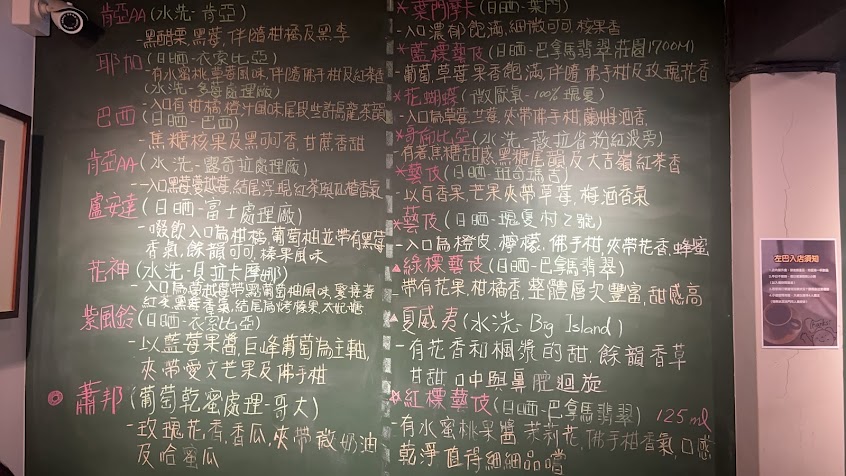 肯亞AA(水洗-肯亞)
-黑醋栗,黑莓,伴隨柑橘及黑李
耶加(日晒-衣索比亞)
-有水蜜桃,草莓風味,伴隨佛手柑及紅茶香
(水洗-多每處理廠)
-入口有柑橘,橙汁風味尾段些許烏龍茶韻
巴西(日晒-巴西)
焦糖核果及黑可可香,甘蔗香甜
肯亞AA(水洗-露奇拉處理廠)
-入口黑莓蔓越莓,結尾浮現紅茶與瓜楂香氣
盧安達(日晒-富士處理廠)
-啜飲入口為柑橘,葡萄柚並帶有黑莓
香氣,餘韻可可,榛果風味
花神(水洗-貝拉卡摩娜)
-入口為蔓越莓帶點葡萄柚風味,緊接著
紅茶,黑莓香氣,結尾為烤榛果,太妃糖
紫風鈴(日晒-衣索比亞)
-以藍莓果醬,巨峰葡萄為主軸,
夾帶愛文芒果及佛手柑
蕭邦(葡萄乾蜜處理-哥大)
-玫瑰花香,香瓜,夾帶微奶油
及哈蜜瓜
*葉門摩卡(日晒-葉門)
-入口濃郁飽滿,細微可可,核果香
*藍標藝伎(日晒-巴拿馬翡翠莊園1700M)
-葡萄,草莓果香飽滿,伴隨佛手柑及玫瑰花香
*花蝴蝶(微厭氧-100%瑰夏)
-入口為草莓,芒果,夾帶佛手柑,蘭姆酒香,
*哥倫比亞(水洗-薇拉省粉紅波旁)
-有著焦糖甜感,黑糖尾韻及大吉嶺紅茶香
*藝伎(日晒-班奇瑪吉)
-以百香果,芒果夾帶草莓,梅酒香氣
*藝伎(日晒-瑰夏村乙號)
-入口為橙皮,檸檬,佛手柑,夾帶花香,蜂蜜
▲綠標藝伎(日晒-巴拿馬翡翠)
-帶有花果,柑橘香,整體層次豐富,甜感高
▲夏威夷(水洗-Big Island)
-有花香和楓漿的甜,餘韻香草
甘甜,口中與鼻腔迴旋
紅標藝伎(日晒-巴拿馬翡翠) 125ml
-有水蜜桃果醬,茉莉花,佛手柑香氣,口感
乾淨,值得細細品嚐
左巴入店須知